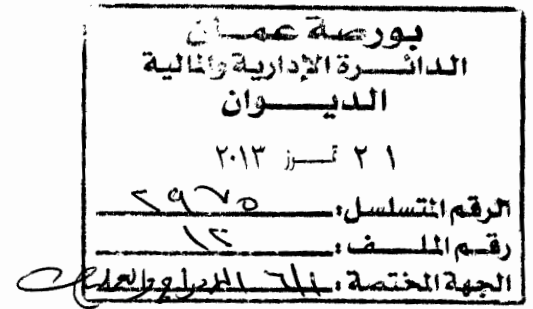 بورصة عمان
الدائرة الإدارية والمالية
الديوان
٢١ تموز ٢٠١٣
الرقم المتسلسل: ٢٩٧٥
رقم الملف: ١٢
الجهة المختصة: الإدراج